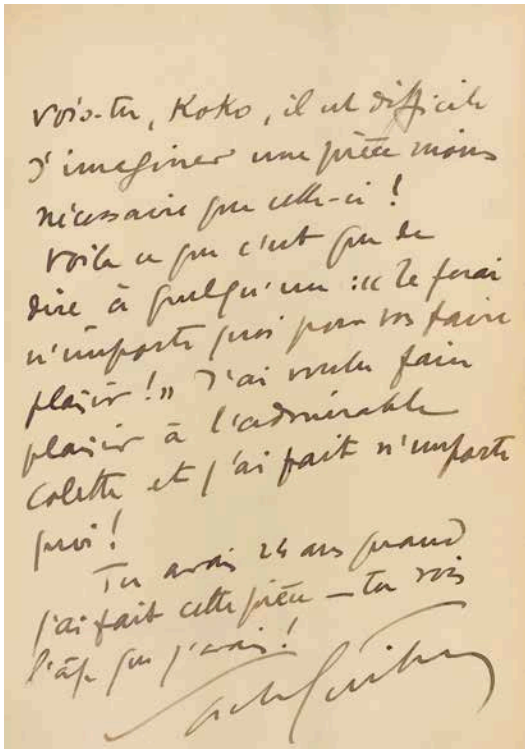 Vois-tu, Koko, il est difficile
d'imaginer une pièce moins
nécessaire que celle-ci !
Voilà ce que c'est que de
dire à quelqu'un : « Je ferai
n'importe quoi pour vs faire
plaisir ! » J'ai voulu faire
plaisir à l'admirable
Colette et j'ai fait n'importe
quoi !
Tu avais 24 ans quand
j'ai fait cette pièce — tu vois
l'âge que j'avais !
Sacha Guitry